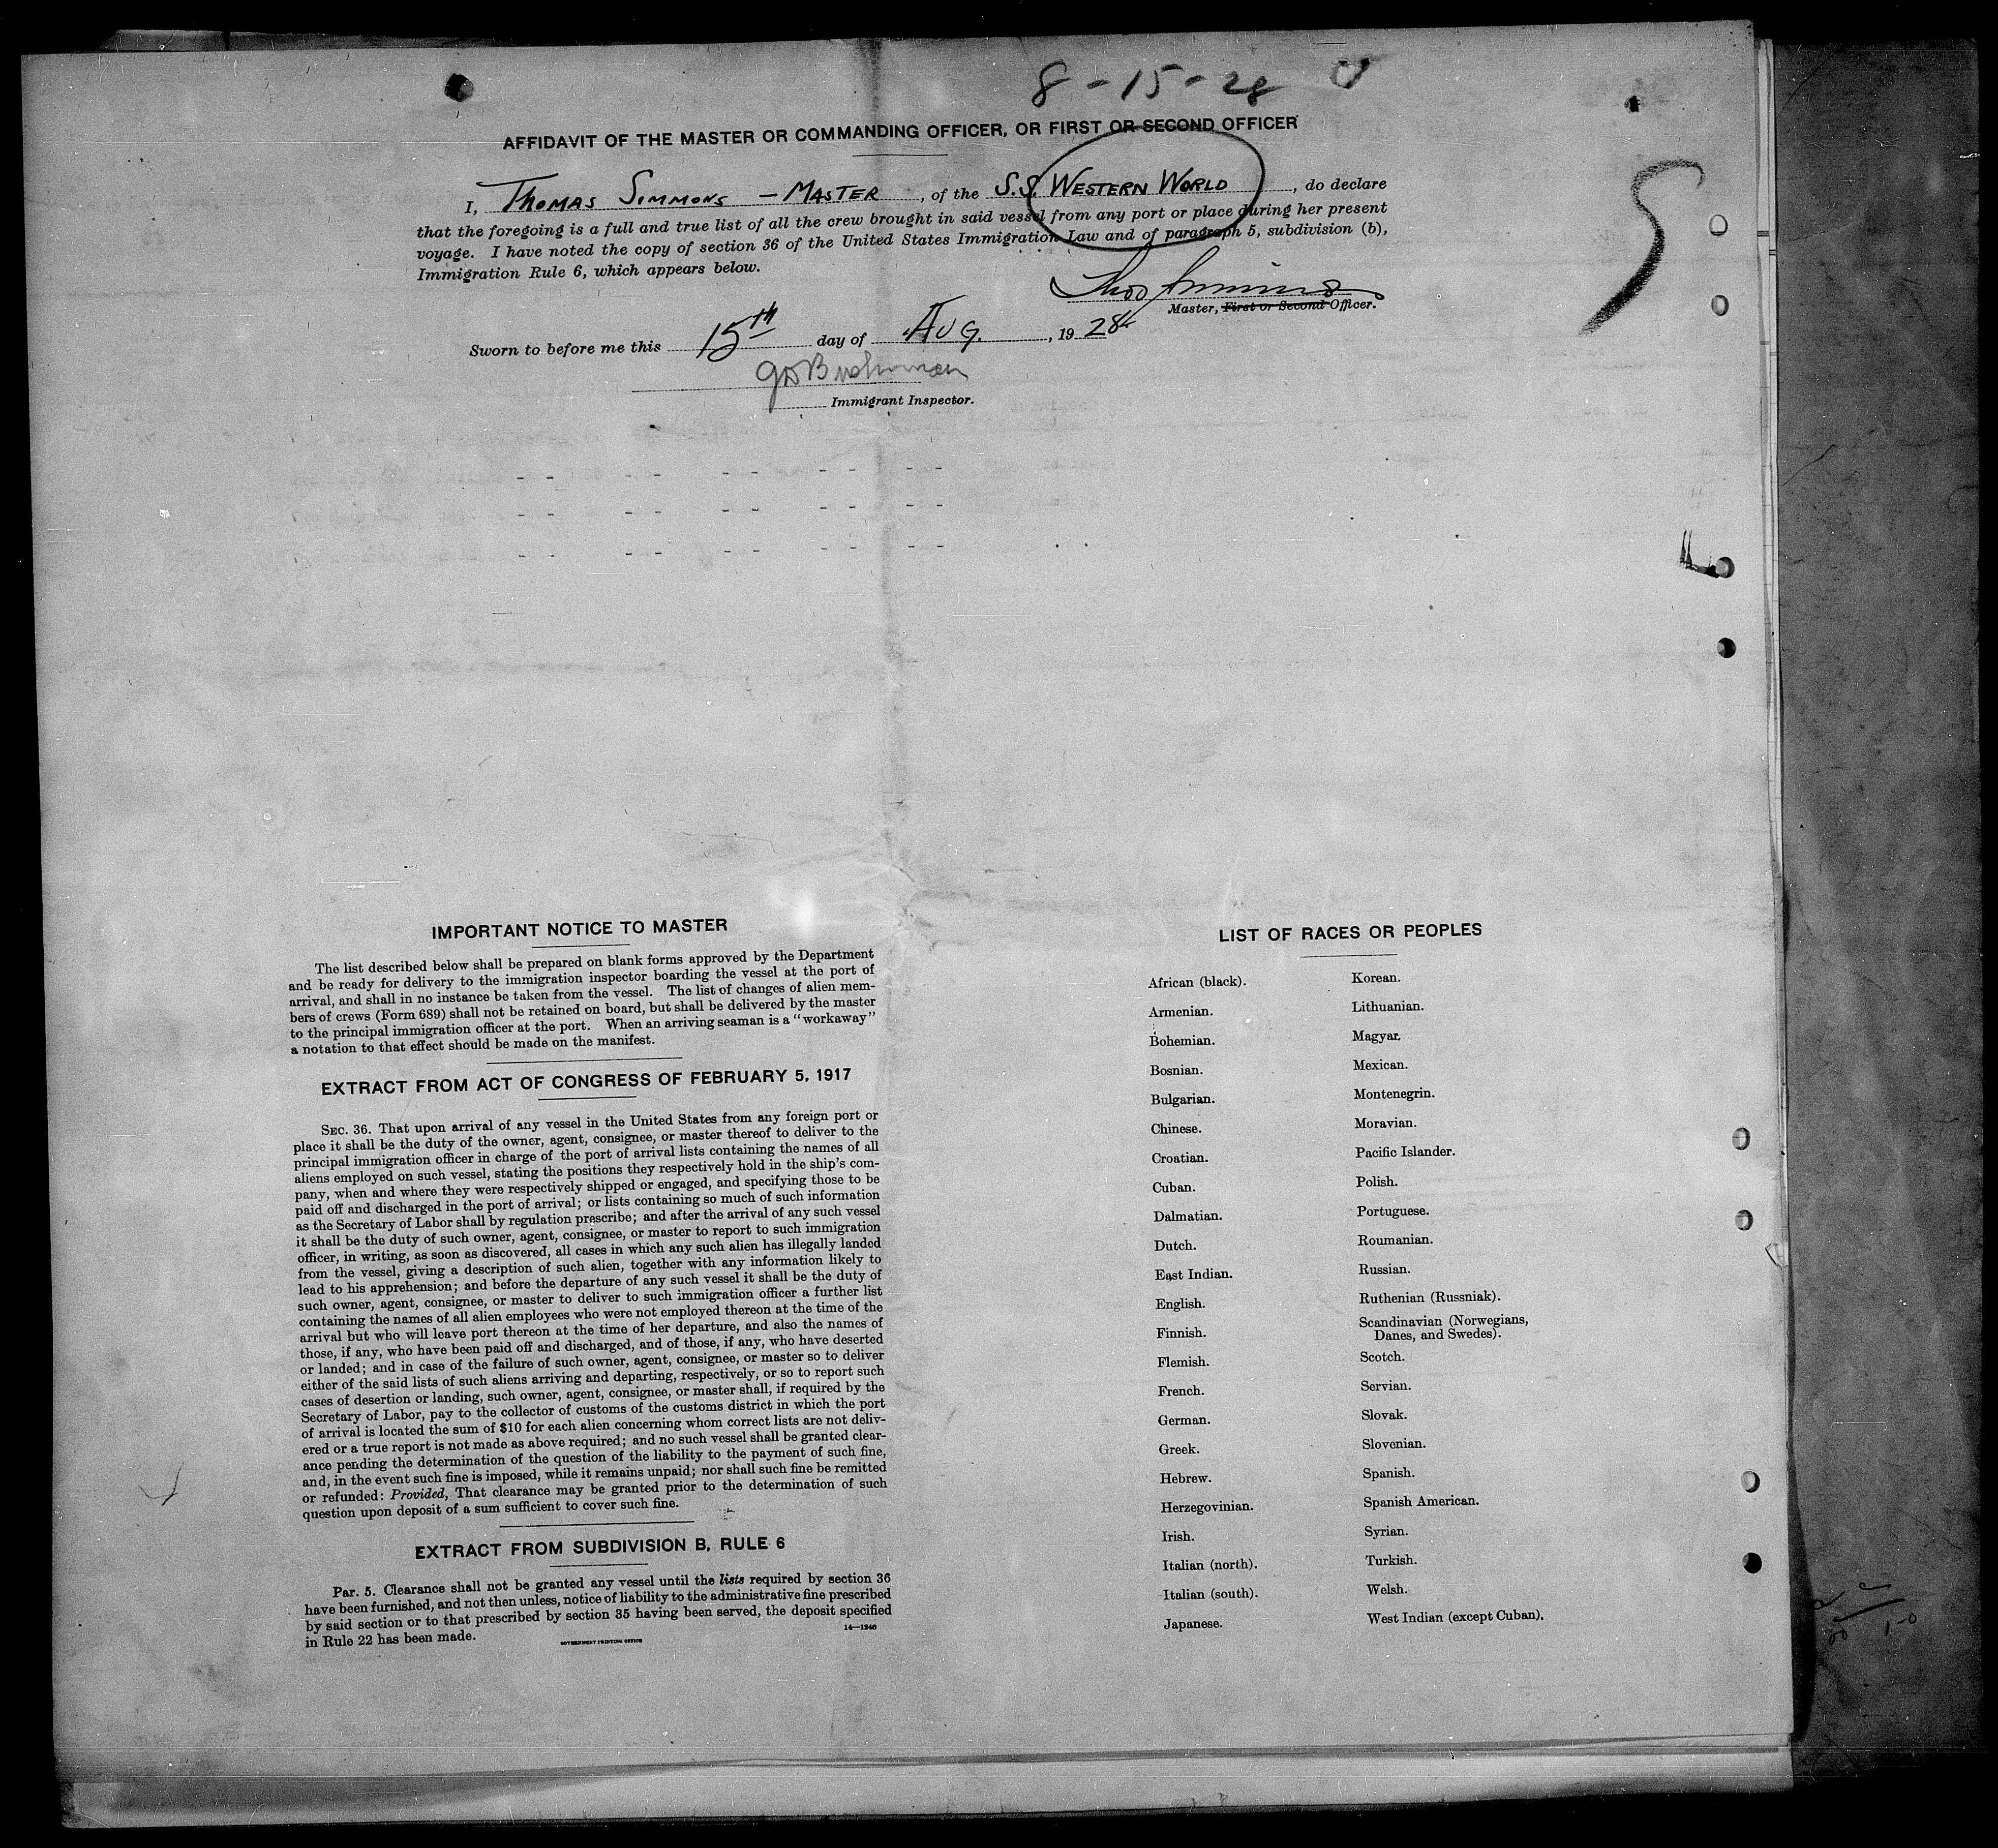 8-15-28
AFFIDAVIT OF THE MASTER OR COMMANDING OFFICER, OR FIRST OR SECOND OFFICER
I, THOMAS SIMMONS — MASTER, of the S.S. WESTERN WORLD, do declare
that the foregoing is a full and true list of all the crew brought in said vessel from any port or place during her present
voyage. I have noted the copy of section 36 of the United States Immigration Law and of paragraph 5, subdivision (b),
Immigration Rule 6, which appears below.
Thos Simmons
Master, First or Second Officer.
Sworn to before me this 15th day of AUG., 1928
Immigrant Inspector.
5
IMPORTANT NOTICE TO MASTER
The list described below shall be prepared on blank forms approved by the Department
and be ready for delivery to the immigration inspector boarding the vessel at the port of
arrival, and shall in no instance be taken from the vessel. The list of changes of alien mem-
bers of crews (Form 689) shall not be retained on board, but shall be delivered by the master
to the principal immigration officer at the port. When an arriving seaman is a "workaway"
a notation to that effect should be made on the manifest.
EXTRACT FROM ACT OF CONGRESS OF FEBRUARY 5, 1917
SEC. 36. That upon arrival of any vessel in the United States from any foreign port or
place it shall be the duty of the owner, agent, consignee, or master thereof to deliver to the
principal immigration officer in charge of the port of arrival lists containing the names of all
aliens employed on such vessel, stating the positions they respectively hold in the ship's com-
pany, when and where they were respectively shipped or engaged, and specifying those to be
paid off and discharged in the port of arrival; or lists containing so much of such information
as the Secretary of Labor shall by regulation prescribe; and after the arrival of any such vessel
it shall be the duty of such owner, agent, consignee, or master to report to such immigration
officer, in writing, as soon as discovered, all cases in which any such alien has illegally landed
from the vessel, giving a description of such alien, together with any information likely to
lead to his apprehension; and before the departure of any such vessel it shall be the duty of
such owner, agent, consignee, or master to deliver to such immigration officer a further list
containing the names of all alien employees who were not employed thereon at the time of the
arrival but who will leave port thereon at the time of her departure, and also the names of
those, if any, who have been paid off and discharged, and of those, if any, who have deserted
or landed; and in case of the failure of such owner, agent, consignee, or master so to deliver
either of the said lists of such aliens arriving and departing, respectively, or so to report such
cases of desertion or landing, such owner, agent, consignee, or master shall, if required by the
Secretary of Labor, pay to the collector of customs of the customs district in which the port
of arrival is located the sum of $10 for each alien concerning whom correct lists are not deliv-
ered or a true report is not made as above required; and no such vessel shall be granted clear-
ance pending the determination of the question of the liability to the payment of such fine,
and, in the event such fine is imposed, while it remains unpaid; nor shall such fine be remitted
or refunded: Provided, That clearance may be granted prior to the determination of such
question upon deposit of a sum sufficient to cover such fine.
EXTRACT FROM SUBDIVISION B, RULE 6
Par. 5. Clearance shall not be granted any vessel until the lists required by section 36
have been furnished, and not then unless, notice of liability to the administrative fine prescribed
by said section or to that prescribed by section 35 having been served, the deposit specified
in Rule 22 has been made.
14—1240
GOVERNMENT PRINTING OFFICE
LIST OF RACES OR PEOPLES
African (black).
Armenian.
Bohemian.
Bosnian.
Bulgarian.
Chinese.
Croatian.
Cuban.
Dalmatian.
Dutch.
East Indian.
English.
Finnish.
Flemish.
French.
German.
Greek.
Hebrew.
Herzegovinian.
Irish.
Italian (north).
Italian (south).
Japanese.
Korean.
Lithuanian.
Magyar.
Mexican.
Montenegrin.
Moravian.
Pacific Islander.
Polish.
Portuguese.
Roumanian.
Russian.
Ruthenian (Russniak).
Scandinavian (Norwegians,
Danes, and Swedes).
Scotch.
Servian.
Slovak.
Slovenian.
Spanish.
Spanish American.
Syrian.
Turkish.
Welsh.
West Indian (except Cuban).